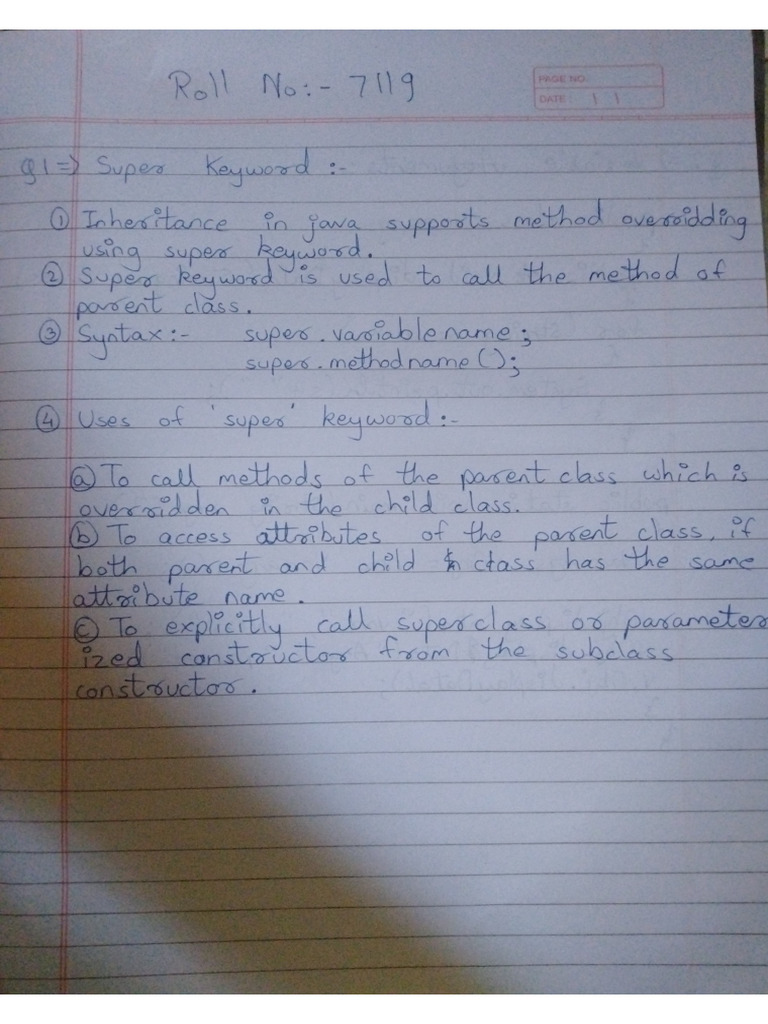 Roll No:- 7119
PAGE NO.
DATE: / /
Q1=> Super Keyword :-
① Inheritance in java supports method overridding
using super keyword.
② Super keyword is used to call the method of
parent class.
③ Syntax:- super.variablename;
super.methodname();
④ Uses of 'super' keyword:-
ⓐ To call methods of the parent class which is
overridden in the child class.
ⓑ To access attributes of the parent class, if
both parent and child class has the same
attribute name.
ⓒ To explicitly call superclass or parameter
ized constructor from the subclass
constructor.